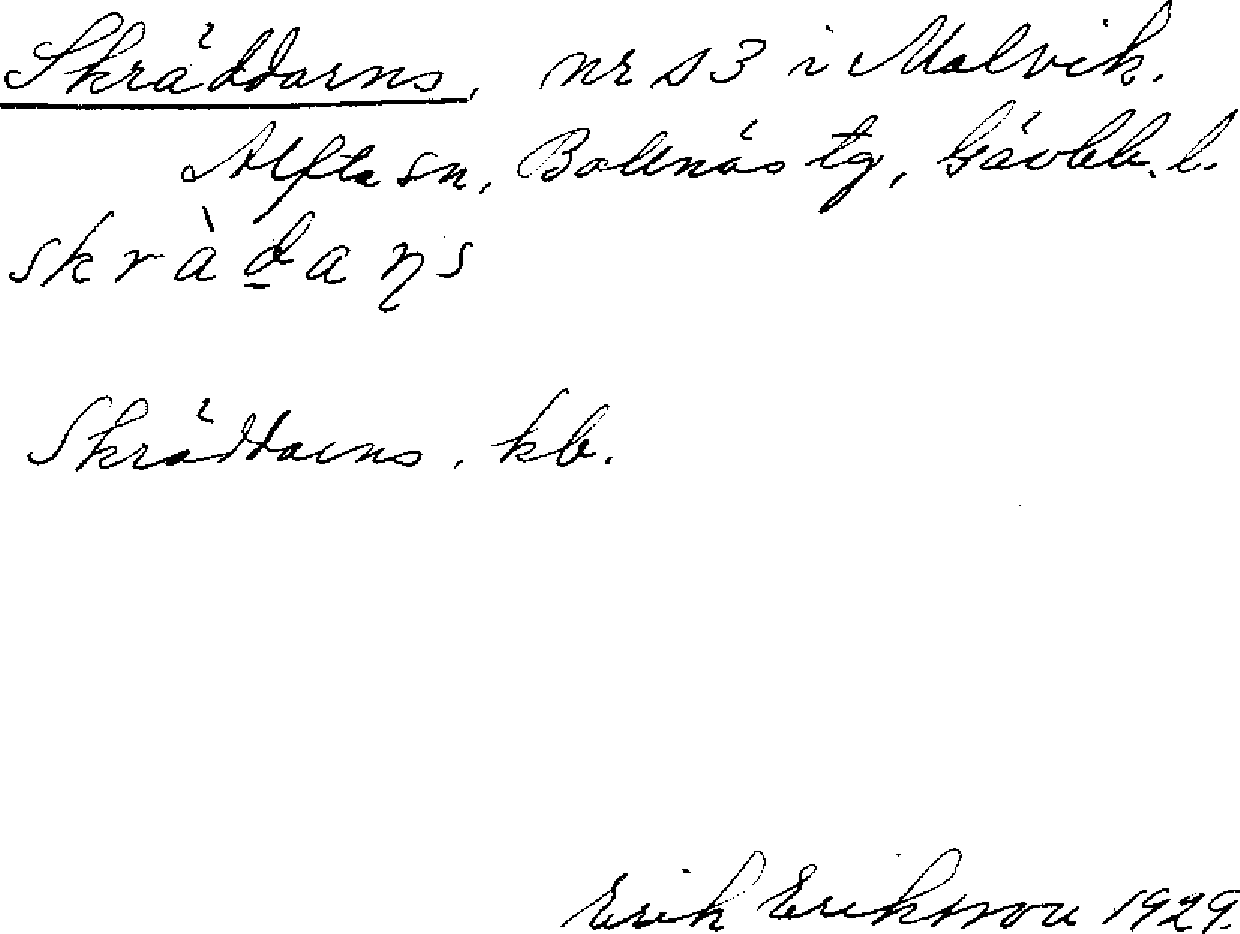 Skräddarns, nr 13 i Malvik.
Alfta sn, Bollnäs tg, Gävleb. l.
skràdaṇs
Skräddarns, kb.
Erik Eriksson 1929.